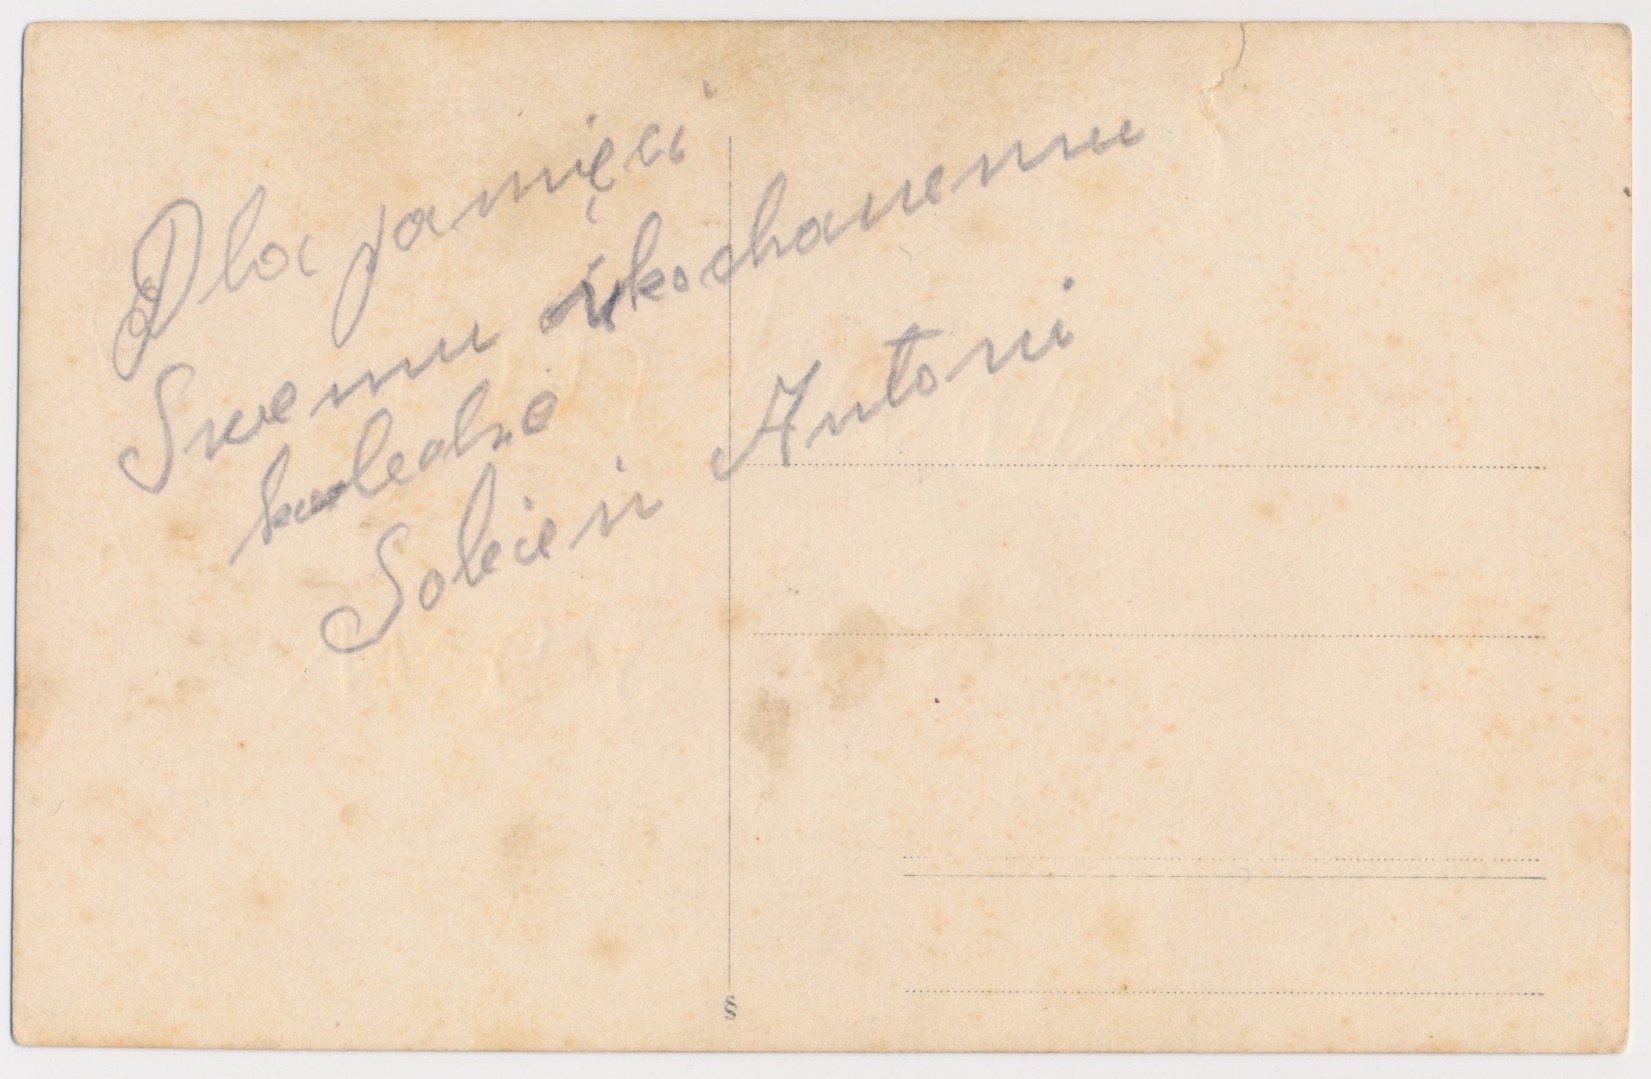 Dla pamięci
Swemu ukochanemu
koledze
Solcień Antoni
§